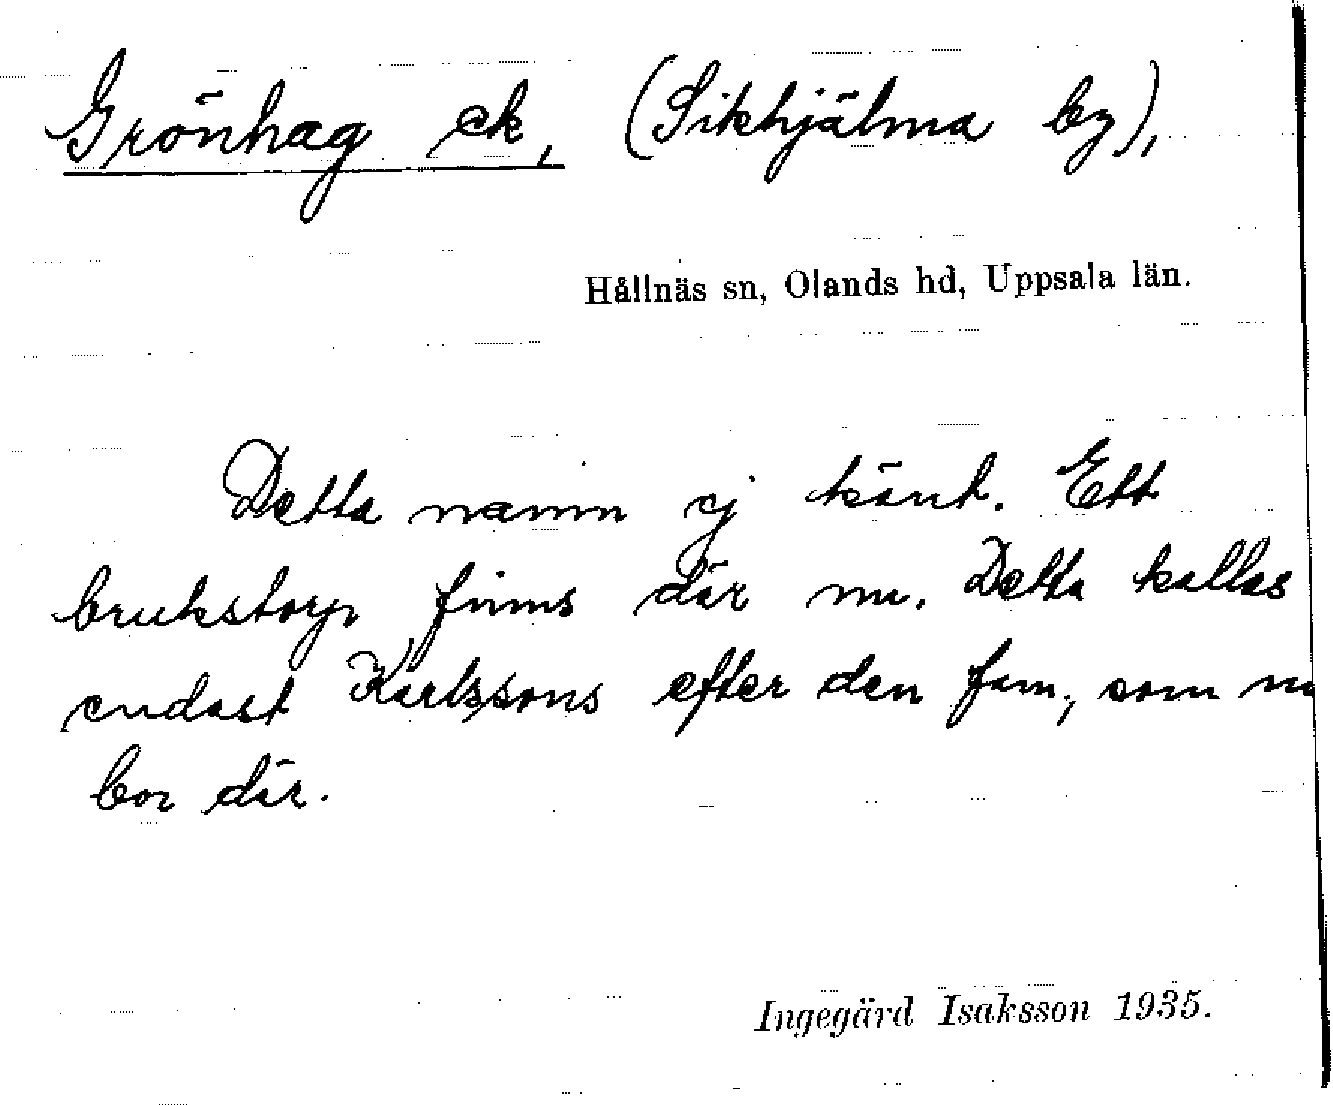 Grönhag ck, (Sikhjälma by),
Hållnäs sn, Olands hd, Uppsala län.
Detta namn ej känt. Ett
brukstorp finns där nu. Detta kallas
endast Karlssons efter den fam, som nu
bor där.
Ingegärd Isaksson 1935.